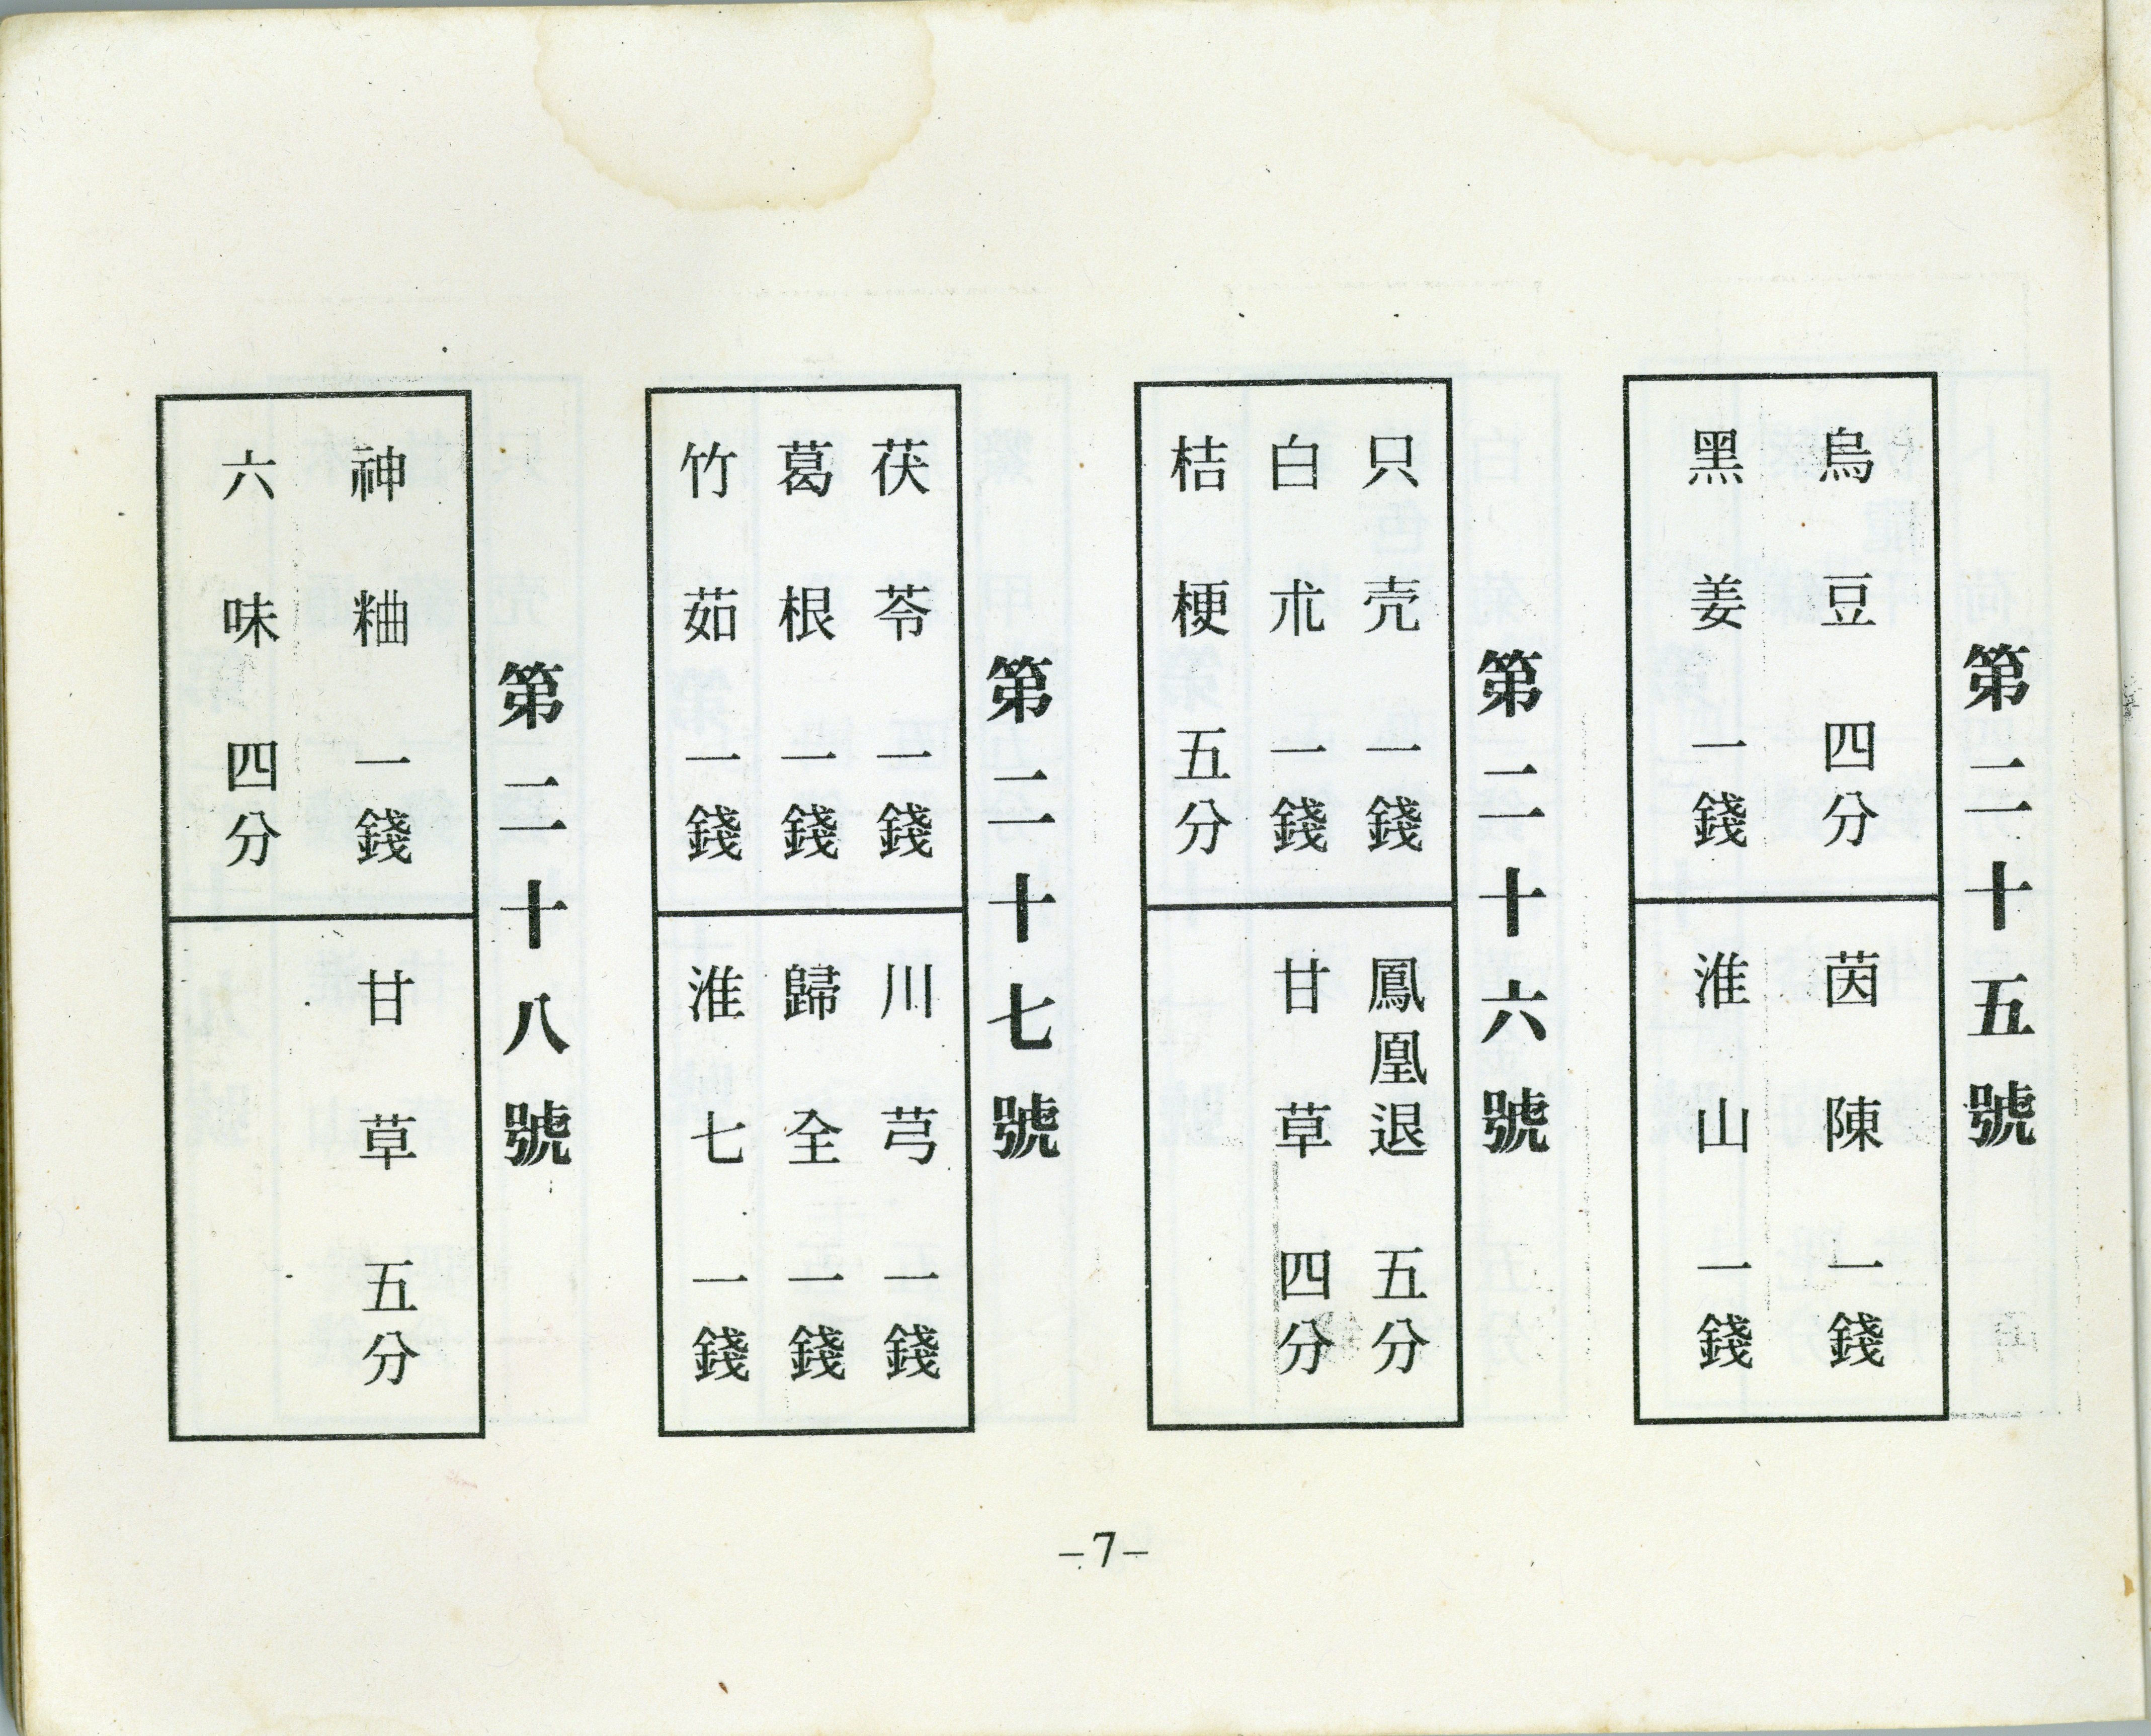 第二十五號
烏豆 四分
黑姜 一錢
茵陳 一錢
淮山 一錢
第二十六號
只壳 一錢
白朮 一錢
桔梗 五分
鳳凰退 五分
甘草 四分
第二十七號
茯苓 一錢
葛根 一錢
竹茹 一錢
川芎 一錢
歸全 一錢
淮七 一錢
第二十八號
神粬 一錢
六味 四分
甘草 五分
–7–